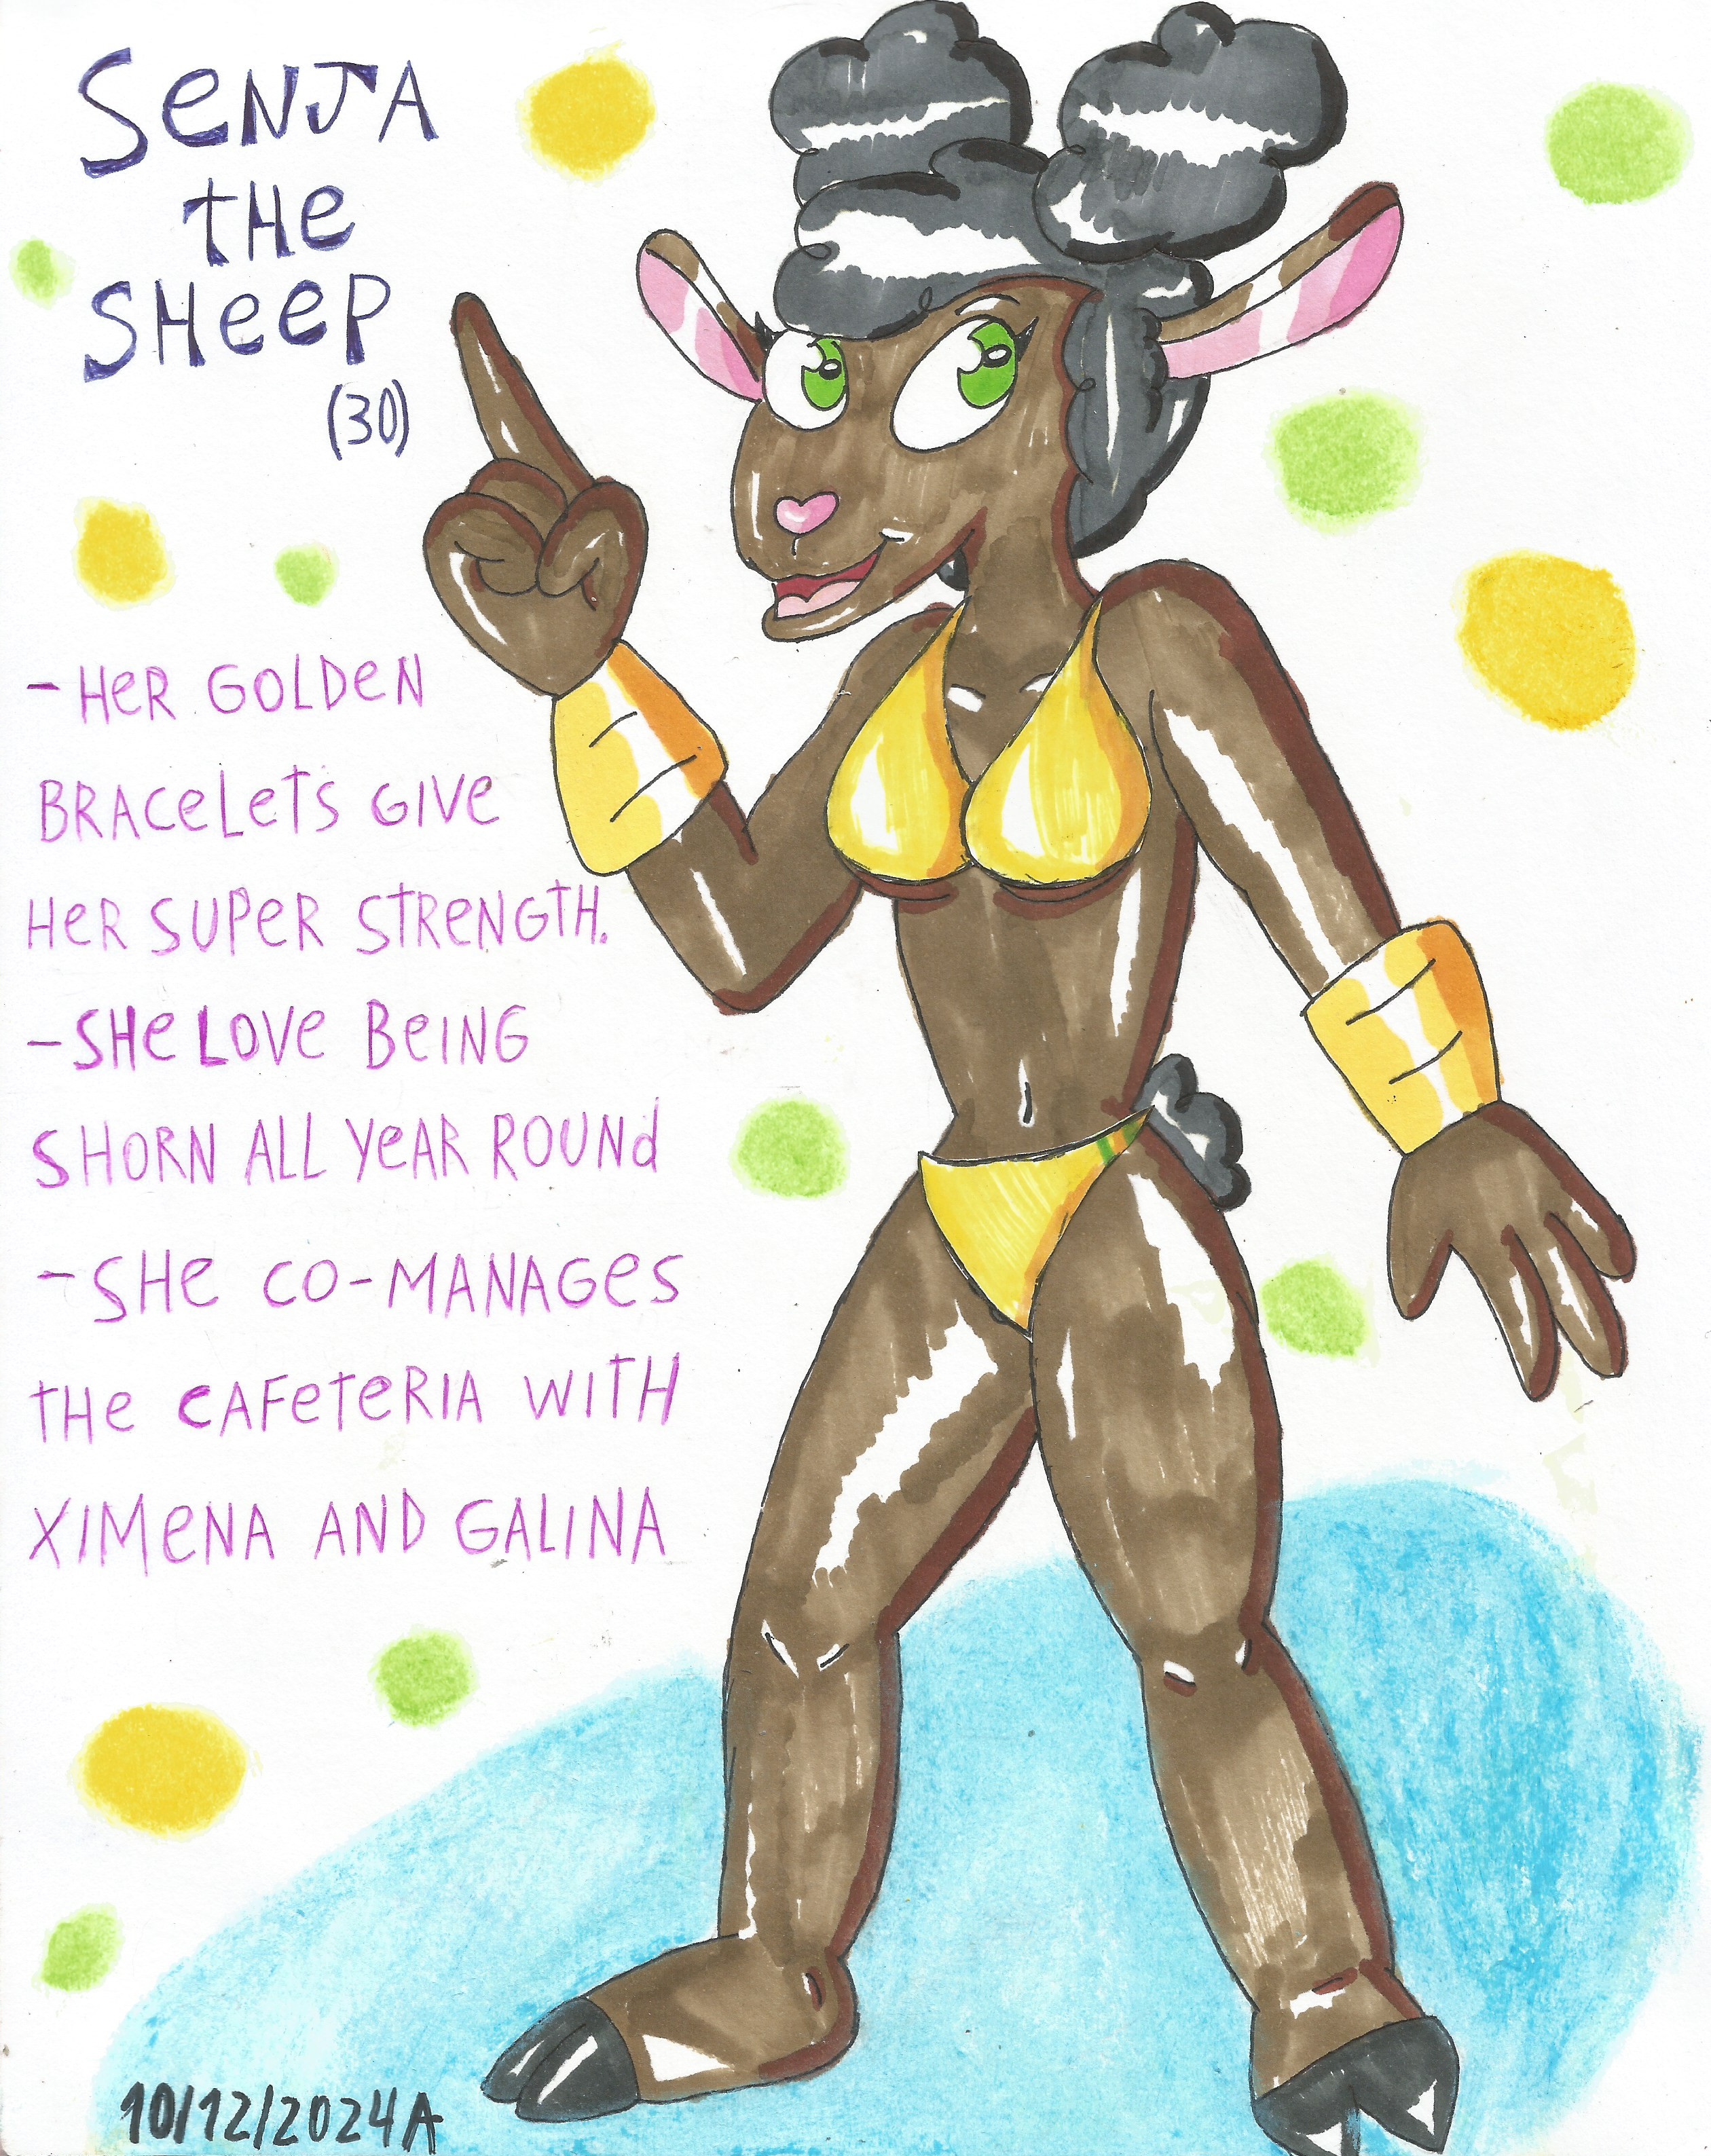 SeNJA
tHe
SHeeP
(30)
-HeR GOLDeN
BRACeLetS GIVe
HeR SUPeR StReNGtH.
-SHe LOVe BeING
SHORN ALL YeAR ROUNd
-SHe CO-MANAGeS
tHe CAFeteRIA WItH
XIMeNA AND GALINA
10/12/2024A